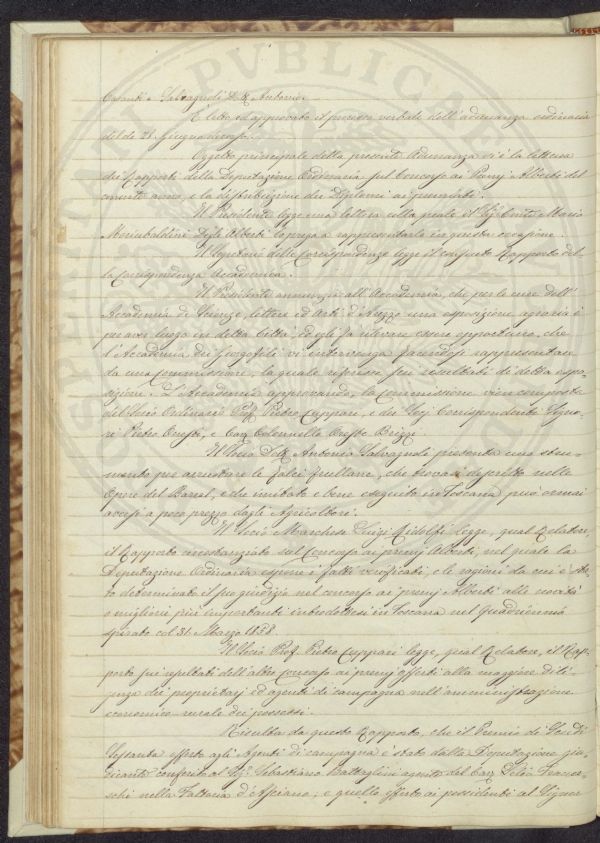 Casanti e Salvagnoli Dott. Antonio.
È letto ed approvato il processo verbale dell'adunanza ordinaria
del dì 28. Giugno decorso.
Oggetto principale della presente Adunanza si è la lettura
dei Rapporti della Deputazione Ordinaria sul Concorso ai Premj Alberti del
corrente anno, e la distribuzione dei Diplomi ai premiati.
Il Presidente legge una lettera colla quale il Sig. Conte Mario
Moriubaldini degli Alberti lo prega a rappresentarlo in questa occasione.
Il Segretario delle Corrispondenze legge il consueto Rapporto del-
la Corrispondenza Accademica.
Il Presidente annunzia all'Accademia, che per le cure dell'
Accademia di Scienze, lettere ed Arti d'Arezzo una esposizione agraria è
per aver luogo in detta Città; ed egli fa rilevare essere opportuno, che
l'Accademia dei Georgofili vi intervenga facendosi rappresentare
da una Commissione, la quale referisse sui resultati di detta espo-
sizione. L'Accademia approvando, la Commissione vien composta
del Socio Ordinario Prof. Pietro Cuppari, e dei Sigg. Corrispondenti Signo-
ri Pietro Onesti, e Cav. Colonnello Oreste Brizzi.
Il Socio Dott. Antonio Salvagnoli presenta uno stru-
mento per arruotare le falci frullane, che trovasi descritto nelle
Opere del Barel, e che imitato e bene eseguito in Toscana può ormai
aversi a poco prezzo dagli Agricoltori.
Il Socio Marchese Luigi Ridolfi legge, qual Relatore,
il Rapporto circostanziato sul Concorso ai premj Alberti, nel quale la
Deputazione Ordinaria espone i fatti verificati, e le ragioni da cui è sta-
to determinato il suo giudizio nel concorso ai premj Alberti alle novità
o migliorie più importanti introdottesi in Toscana nel quadriennio
spirato col 31. Marzo 1858.
Il Socio Prof. Pietro Cuppari legge, qual Relatore, il Rap-
porto sui resultati dell'altro Concorso ai premj offerti alla maggiore dili-
genza dei proprietarj ed agenti di campagna nell'amministrazione
economico-rurale dei possessi.
Risulta da questo Rapporto, che il Premio di Scudi
Sessanta offerto agli Agenti di campagna è stato dalla Deputazione giu-
dicante conferito al Sig. Sebastiano Battaglini agente del Cav. Lelio France-
schi nella Fattoria d'Asciano; e quello offerto ai possidenti al Signor